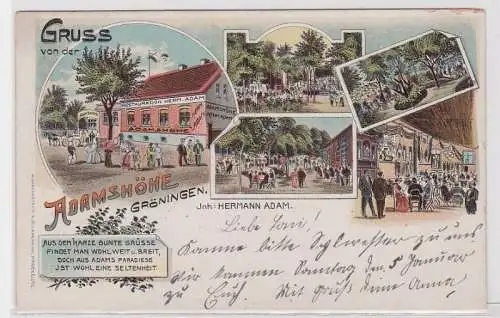 GRUSS
von der
RESTAURATION HERM. ADAM.
ADAMSHÖHE
ADAMSHÖHE
GRÖNINGEN.
Jnh: HERMANN ADAM.
AUS DEM HARZE BUNTE GRÜSSE
FINDET MAN WOHL WEIT U. BREIT,
DOCH AUS ADAMS PARADIESE
JST WOHL EINE SELTENHEIT.
Liebe
Komme bitte Sylvester zu uns
wir kommen Sonntag den 5 Januar
zu Euch. Mit Gruß Anna